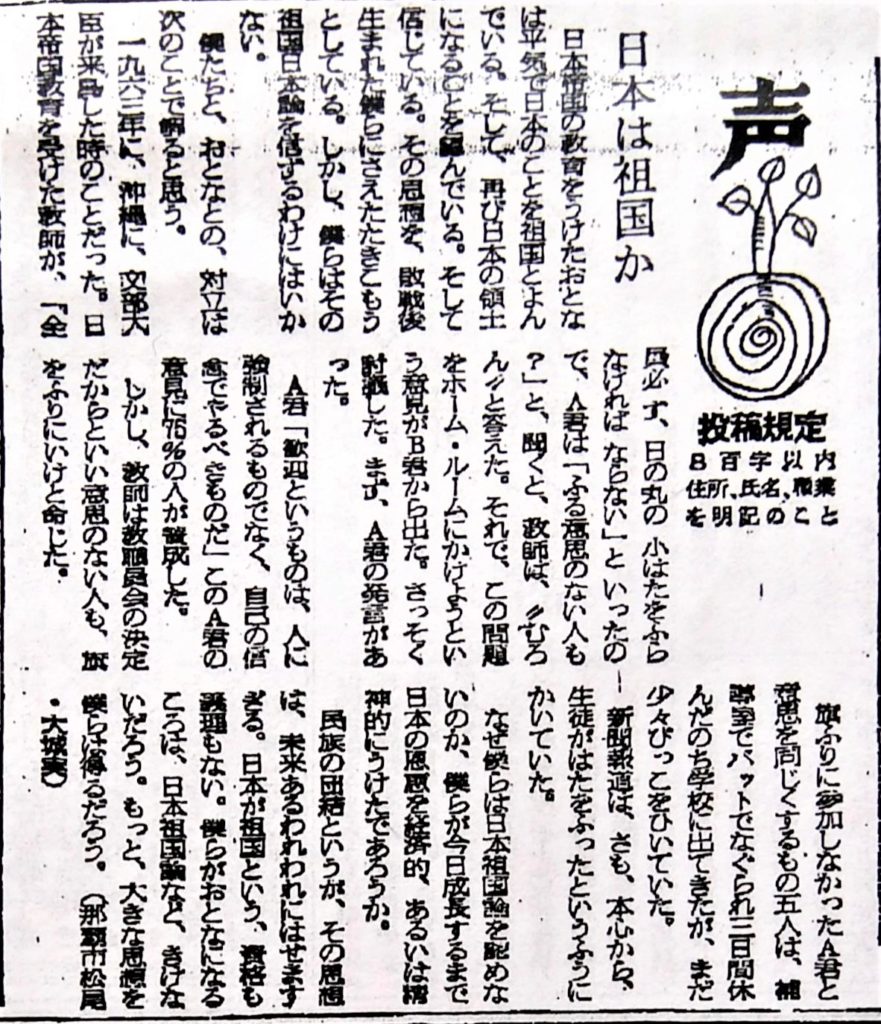 声
投稿規定
8百字以内
住所、氏名、職業
を明記のこと
日本は祖国か
日本帝国の教育をうけたおとな
は平気で日本のことを祖国とよん
でいる。そして、再び日本の領土
になることを望んでいる。そして
信じている。その思想を、敗戦後
生まれた僕らにさえたたきこもう
としている。しかし、僕らはその
祖国日本論を信ずるわけにはいか
ない。
僕たちと、おとなとの、対立は
次のことで解ると思う。
一九六三年に、沖縄に、文部大
臣が来島した時のことだった。日
本帝国教育を受けた教師が、「全
員必ず、日の丸の 小はたをふら
なければ ならない」といったの
で、A君は「ふる意思のない人も
?」と、聞くと、教師は、〃むろ
ん〃と答えた。それで、この問題
をホーム・ルームにかけようとい
う意見がB君から出た。さっそく
討議した。まず、A君の発言があ
った。
A君「歓迎というものは、人に
強制されるものでなく、自己の信
念でやるべきものだ」このA君の
意見に75%の人が賛成した。
しかし、教師は教職員会の決定
だからといい意思のない人も、旗
をふりにいけと命じた。
旗ふりに参加しなかったA君と
意思を同じくするもの五人は、補
導室でバットでなぐられ三日間休
んだのち学校に出てきたが、まだ
少々びっこをひいていた。
新聞報道は、さも、本心から、
生徒がはたをふったというふうに
かいていた。
なぜ僕らは日本祖国論を認めな
いのか、僕らが今日成長するまで
日本の恩恵を経済的、あるいは精
神的にうけたであろうか。
民族の団結というが、その思想
は、未来あるわれわれにはせます
ぎる。日本が祖国という、資格も
義理もない。僕らがおとなになる
ころは、日本祖国論など、きけな
いだろう。もっと、大きな思想を
僕らは得るだろう。(那覇市松尾
・大城実)